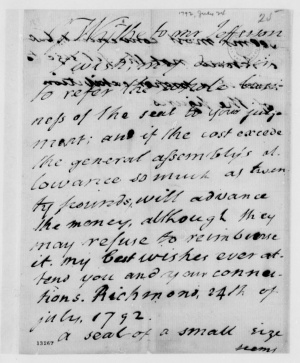 1792 July 24
25
Wythe to mr Jefferson
to refer the whole busi-
ness of the seal to you judge-
ment; and if the cost excede
the general assembly's al-
lowance so much as twen-
ty pounds, will advance
the money, although they
may refuse to reimburse
it. my best wishes ever at-
tend you and your connec-
tions. Richmond, 24th of
july, 1792.
a seal of a small size
seems
13267